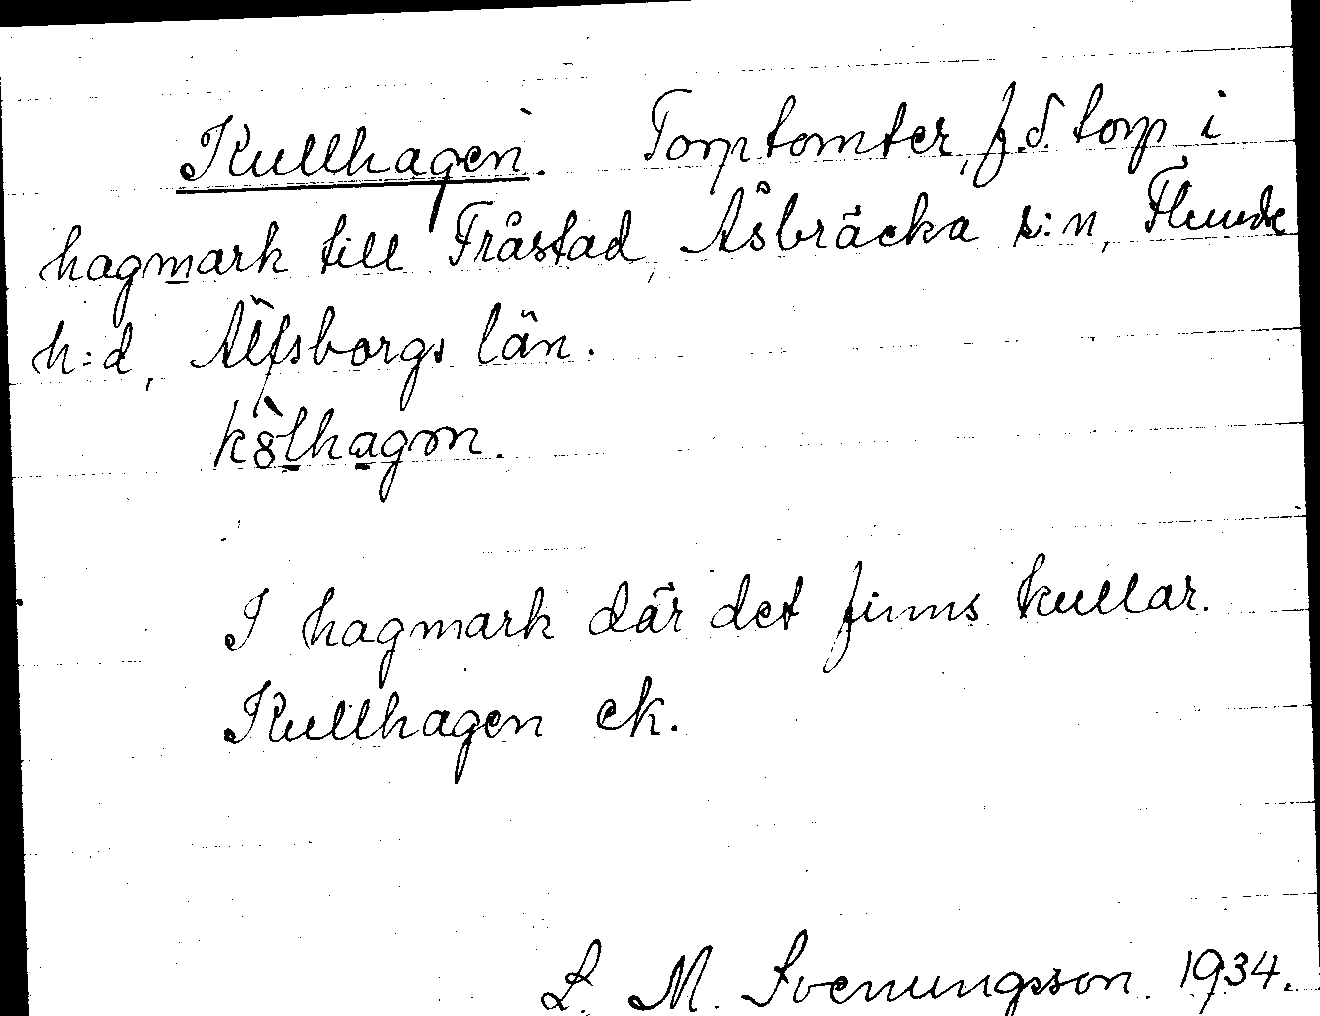 Kullhagen. Torptomter, f.d. torp i
hagmark till Fråstad, Åsbräcka s:n, Flundre
h:d, Älfsborgs län.
k8̀lhagɷn.
I hagmark där det finns kullar.
Kullhagen ek.
L. M. Svenungsson. 1934.